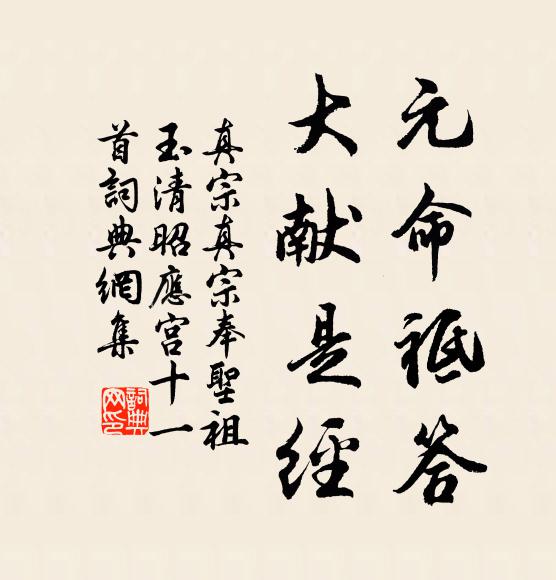 元命祗答
大献是經
真宗真宗奉聖祖
玉清昭應宮十一
首詞典網集
詞典網印